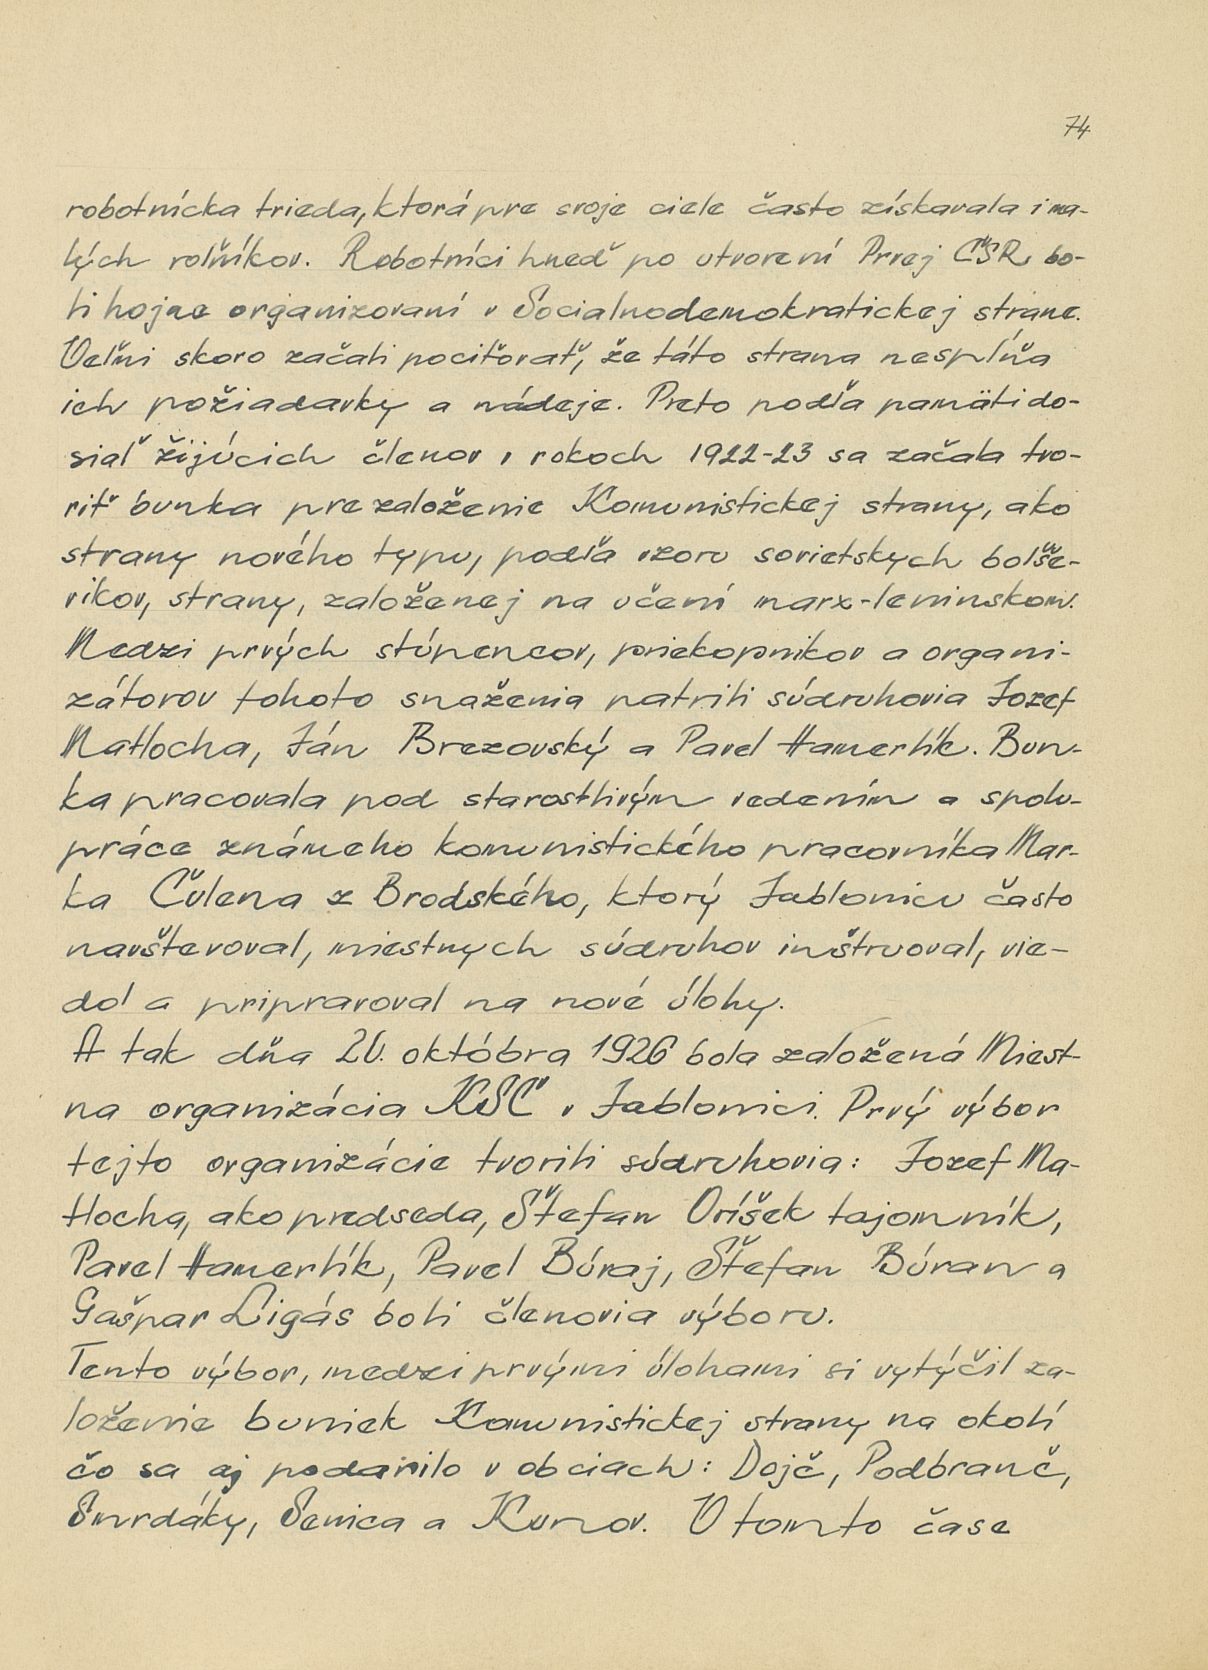 74
robotnícka trieda, ktorá pre svoje ciele často získavala i ma-
lých rolňíkov. Robotníci hneď po utvorení Prvej ČSR, bo-
li hojne organizovaní v Socialnodemokratickej strane.
Veľmi skoro začali pociťovať, že táto strana nespĺňa
ich požiadavky a nádeje. Preto podľa pamäti do-
siaľ žijúcich členov v rokoch 1922-23 sa začala tvo-
riť bunka pre založenie Komunistickej strany, ako
strany nového typu, podľa vzoru sovietskych bolše-
vikov, strany, založenej na učení marx-leninskom.
Medzi prvých stúpencov, priekopnikov a organi-
zátorov tohoto snaženia patrili súdruhovia Jozef
Matlocha, Ján Brezovský a Pavel Hamerlík. Bun-
ka pracovala pod starostlivým vedením a spolu-
práce známeho komunistického pracovníka Mar-
ka Čulena z Brodského, ktorý Jablonicu často
navštevoval, miestnych súdruhov inštruoval, vie-
dol a pripravoval na nové úlohy.
A tak dňa 20. októbra 1926 bola založená Miest-
na organizácia KSČ v Jablonici. Prvý výbor
tejto organizácie tvorili súdruhovia: Jozef Ma-
tlocha, ako predseda, Štefan Oríšek tajomník,
Pavel Hamerlík, Pavel Búraj, Štefan Búran a
Gašpar Ligás boli členovia výboru.
Tento výbor, medzi prvými úlohami si vytýčil za-
loženie buniek Komunistickej strany na okolí
čo sa aj podarilo v obciach: Dojč, Podbranč,
Smrdáky, Senica a Kunov. V tomto čase